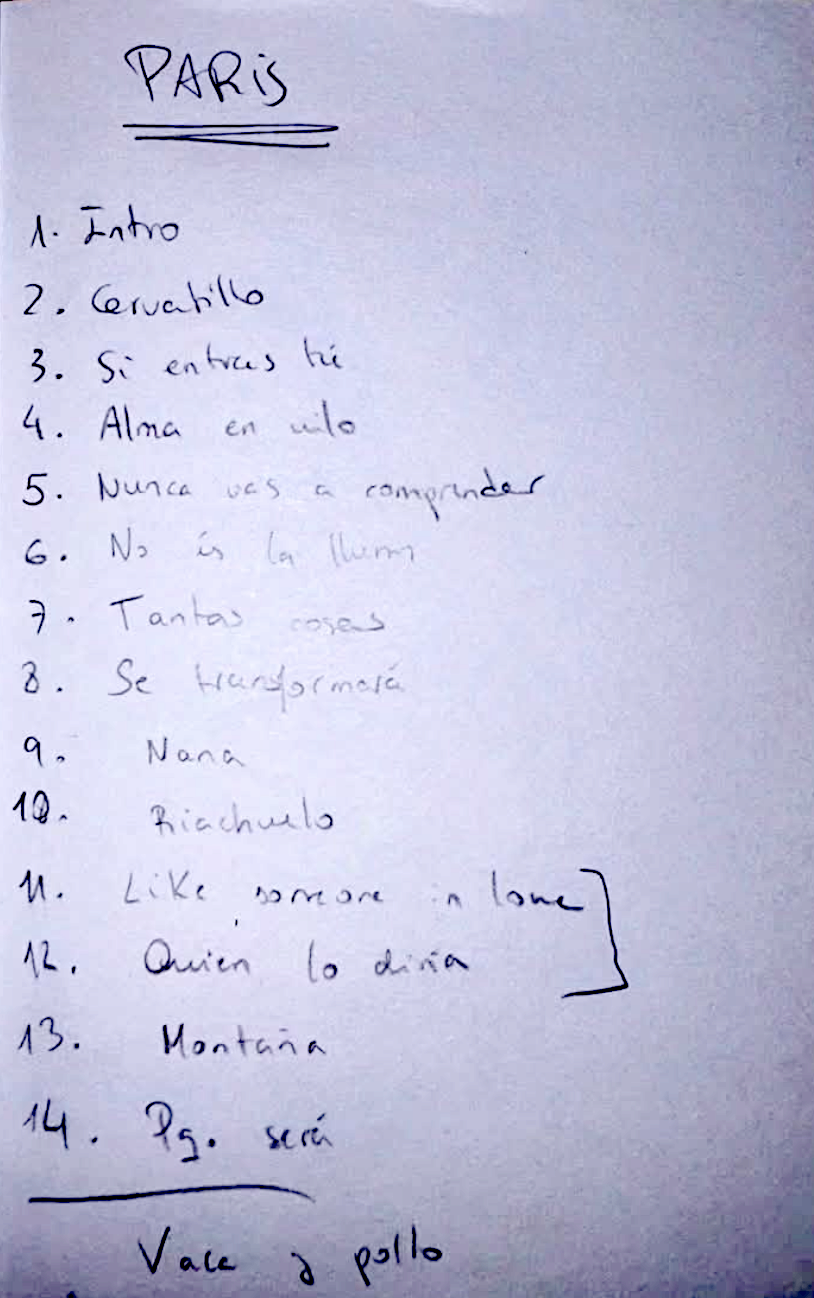 PARiS
1. Intro
2. Cervatillo
3. Si entras tú
4. Alma en vilo
5. Nunca vas a comprender
6. No és la
7. Tantas cosas
8. Se transformará
9. Nana
10. Riachuelo
11. Like someone in love
12. Quien lo diría
13. Montaña
14. Pq. será
Vaca y pollo